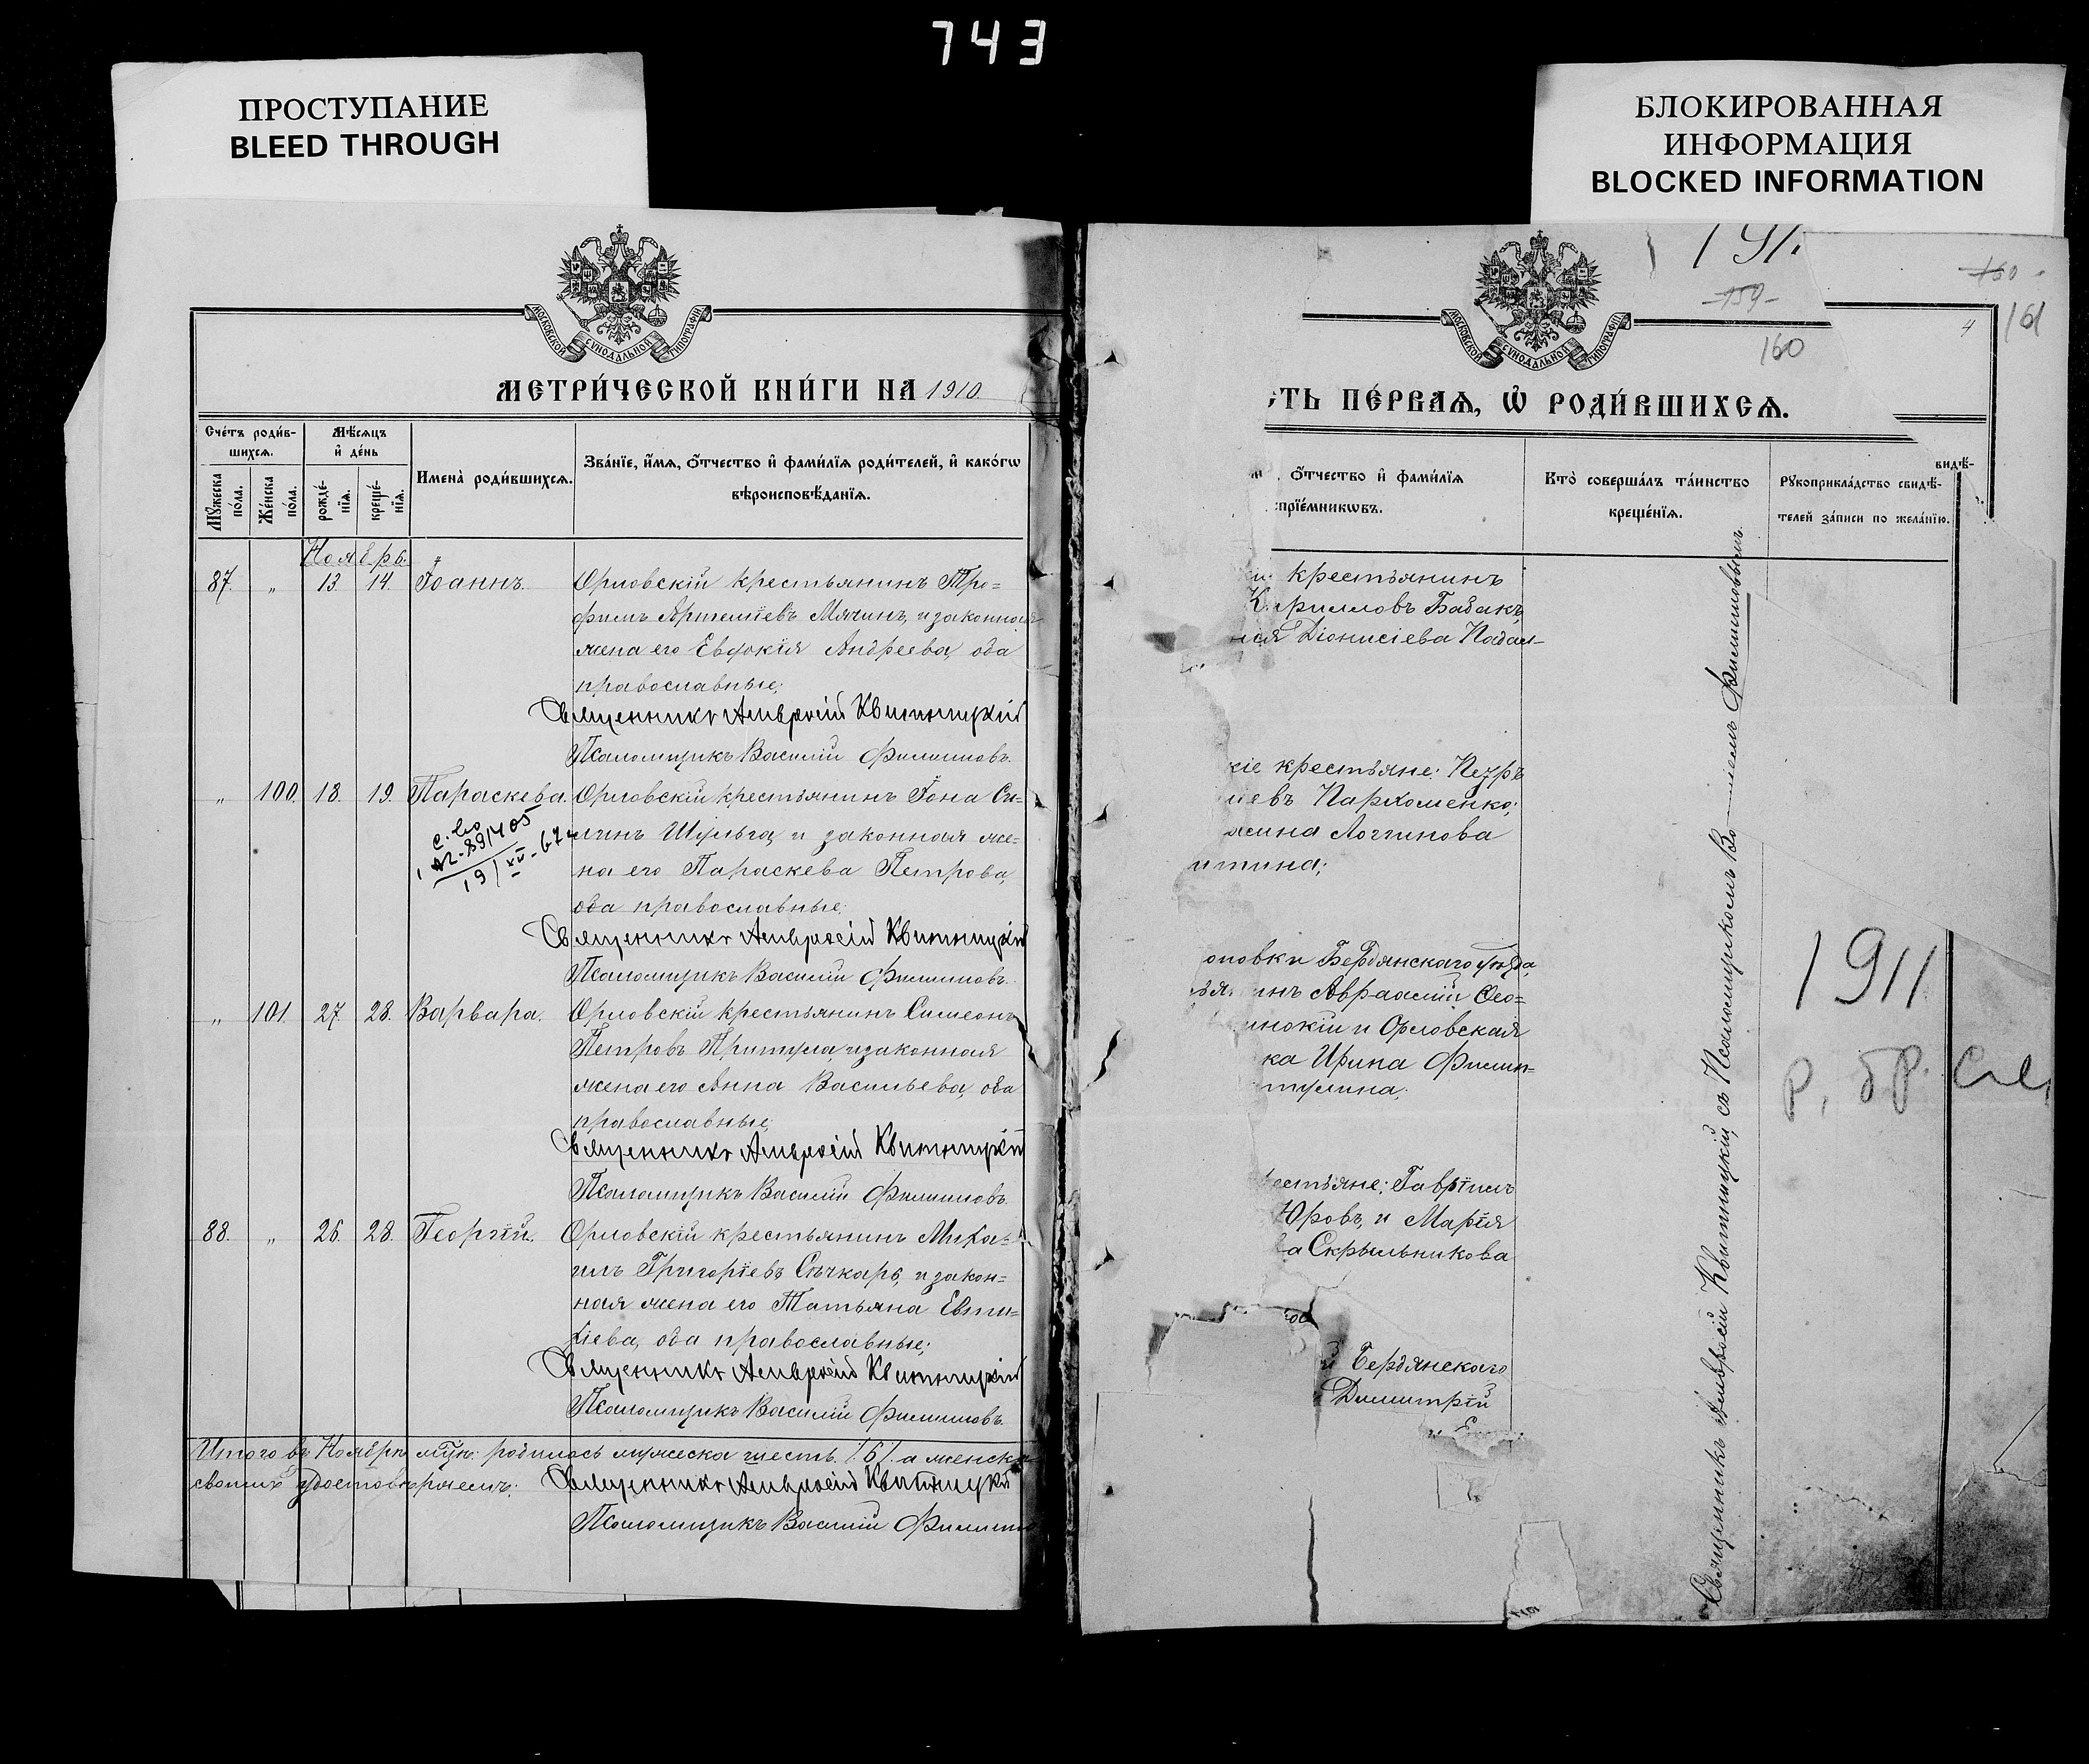 743
ПРОСТУПАНИЕ
BLEED THROUGH
БЛОКИРОВАННАЯ
ИНФОРМАЦИЯ
BLOCKED INFORMATION
МОСКОВСКОЙ СѴНОДАЛЬНОЙ ТИПОГРАФІИ
МЕТРИ́ЧЕСКОЙ КНИ́ГИ НА 1910.
Сче́тъ роди́в-
шихсѧ.
Мѣ́сѧцъ
и҆ де́нь
Мꙋ́жеска
по́ла.
Же́нска
по́ла.
рожде́-
нїѧ.
креще́-
нїѧ.
Имена̀ роди́вшихсѧ.
Зва́нїе, и҆́мѧ, ѻ҆́тчество и҆ фами́лїѧ роди́телей, и҆ како́гѡ
вѣроисповѣ́данїѧ.
Ноябрь.
87. " 13. 14. Іоаннъ. Орловскій крестьянинъ Тро=
фимъ Артеміевъ Мячинъ, и законная
жена его Евдокія Андреева, оба
православные;
Священникъ Амвросій Квитницкій
Псаломщикъ Василій Филиповъ.
" 100. 18. 19. Параскева. Орловскій крестьянинъ Іона Си=
линъ Шульга, и законная же=
на его Параскева Петрова,
оба православные;
Священникъ Амвросій Квитницкій
Псаломщикъ Василій Филиповъ.
" 101. 27. 28. Варвара. Орловскій крестьянинъ Симеонъ
Петровъ Притула, и законная
жена его Анна Васильева, оба
православные;
Священникъ Амвросій Квитницкій
Псаломщикъ Василій Филиповъ.
88. " 26. 28. Георгій. Орловскій крестьянинъ Миха=
илъ Григоріевъ Сѣчкарь, и закон=
ная жена его Татьяна Евти=
хіева, оба православные;
Священникъ Амвросій Квитницкій
Псаломщикъ Василій Филиповъ.
Итого въ Ноябрѣ мѣс. родилось мужеска шесть /6/. а женска
удостовѣряемъ: Священникъ Амвросій Квитницкій
Псаломщикъ Василій Филипо
191.
159
160
160
161
4
МОСКОВСКОЙ СѴНОДАЛЬНОЙ ТИПОГРАФІИ
СТЬ ПЕ́РВАѦ, Ѡ҆ РОДИ́ВШИХСѦ.
ѻ҆́тчество и҆ фами́лїѧ
прїе́мникѡвъ.
Кто̀ соверша́лъ та́инство
креще́нїѧ.
видѣ-
Рꙋкоприкла́дство свидѣ́-
телей за́писи по жела́нїю.
крестьянинъ
Кирилловъ Бабакъ,
Діонисіева
кіе крестьяне: Петръ
Пархоменко;
Логгинова
оповки Бердянскаго уѣзда,
инъ Авраамій Ѳео=
и Орловская
ка Ирина Филип=
тулина;
рестьяне: Гавріилъ
Юровъ, и Марія
ва Скрыльникова
й Бердянскаго
Димитрій
Священникъ Амвросій Квитницкій съ Псаломщикомъ Ва Филиповымъ
1911
р. бр.